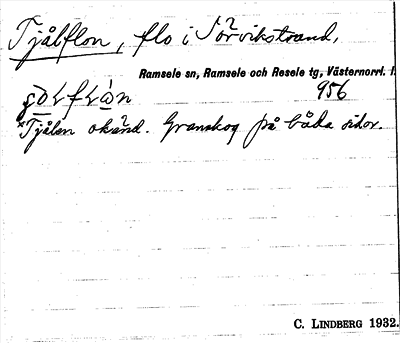 Tjålflon, flo i Sörvikstrand,
Ramsele sn, Ramsele och Resele tg, Västernorrl. l.
956
*Tjålen okänd. Granskog på båda sidor.
C. LINDBERG 1932.